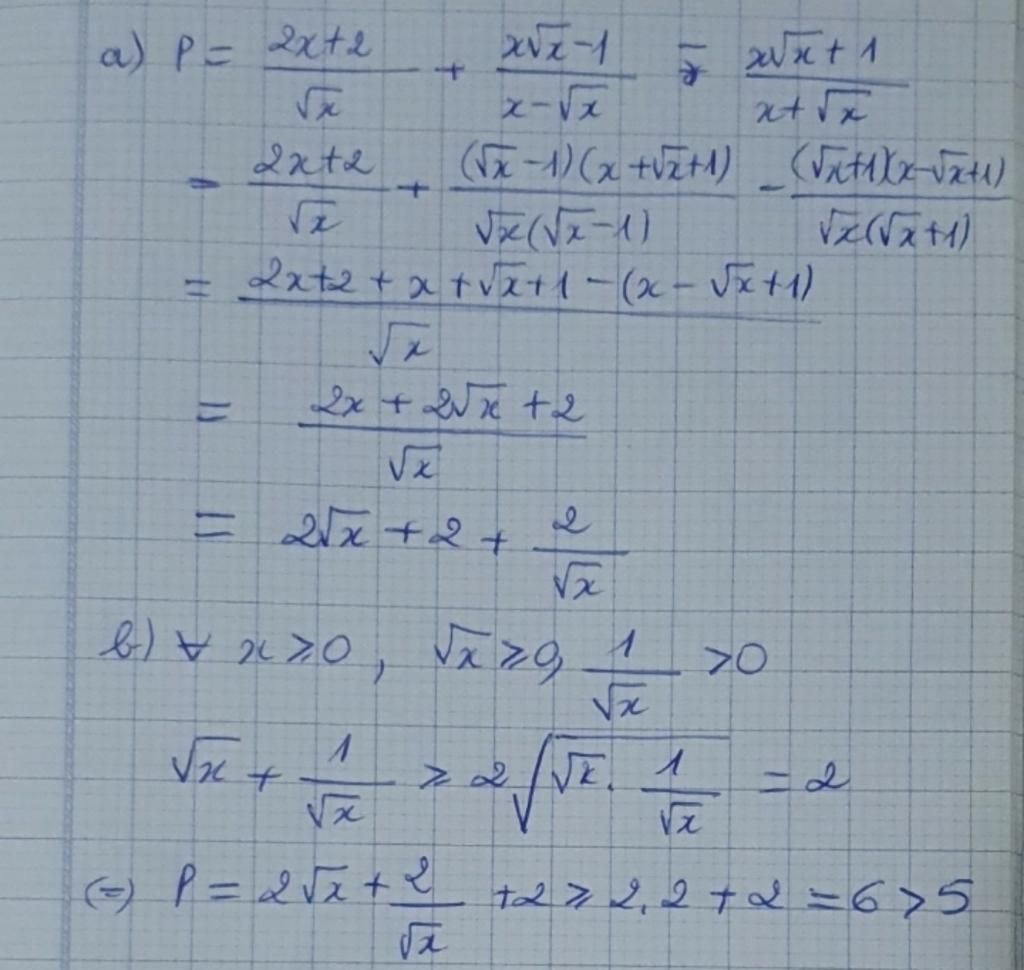 a) P = (2x+2)/√x + (x√x-1)/(x-√x) - (x√x+1)/(x+√x)
= (2x+2)/√x + ((√x-1)(x+√x+1))/(√x(√x-1)) - ((√x+1)(x-√x+1))/(√x(√x+1))
= (2x+2+x+√x+1-(x-√x+1))/√x
= (2x+2√x+2)/√x
= 2√x+2+2/√x
b) ∀ x ≥ 0, √x ≥ 0, 1/√x > 0
√x + 1/√x ≥ 2√(√x . 1/√x) = 2
(=) P = 2√x + 2/√x + 2 ≥ 2.2 + 2 = 6 > 5